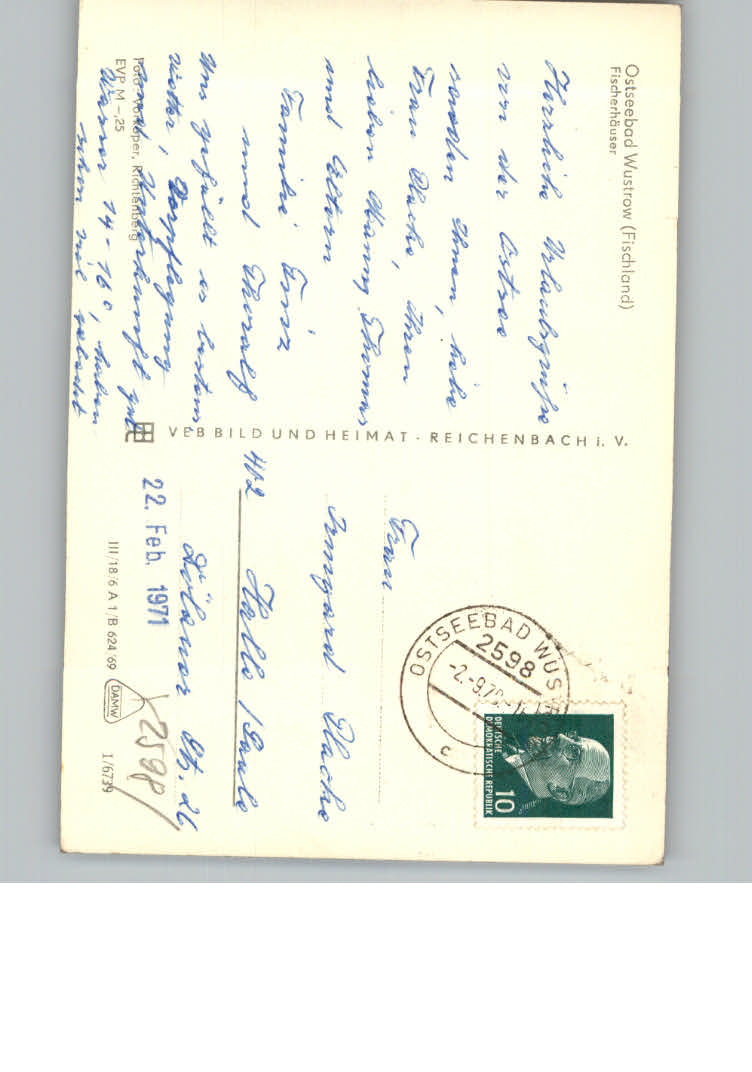 Ostseebad Wustrow (Fischland)
Fischerhäuser
Herzliche Urlaubsgrüße
von der Ostsee
senden Ihnen, liebe
Frau Plache, Ihren
lieben Thomas
und Eltern
Familie
und Thoralf
Uns gefällt es bestens
Verpflegung
und Unterkunft gut
Wasser 14-16°, haben
schon viel gebadet
Foto: Vorköper, Richtenberg
EVP M -,25
VEB BILD UND HEIMAT · REICHENBACH i. V.
Frau
Irmgard Plache
402 Halle / Saale
Dölauer Str. 26
22. Feb. 1971
III/18/6 A 1/B 624/69
DAMW
1/6739
2598
OSTSEEBAD WUS
2598
-2.-9.70
c
DEUTSCHE
DEMOKRATISCHE REPUBLIK
10